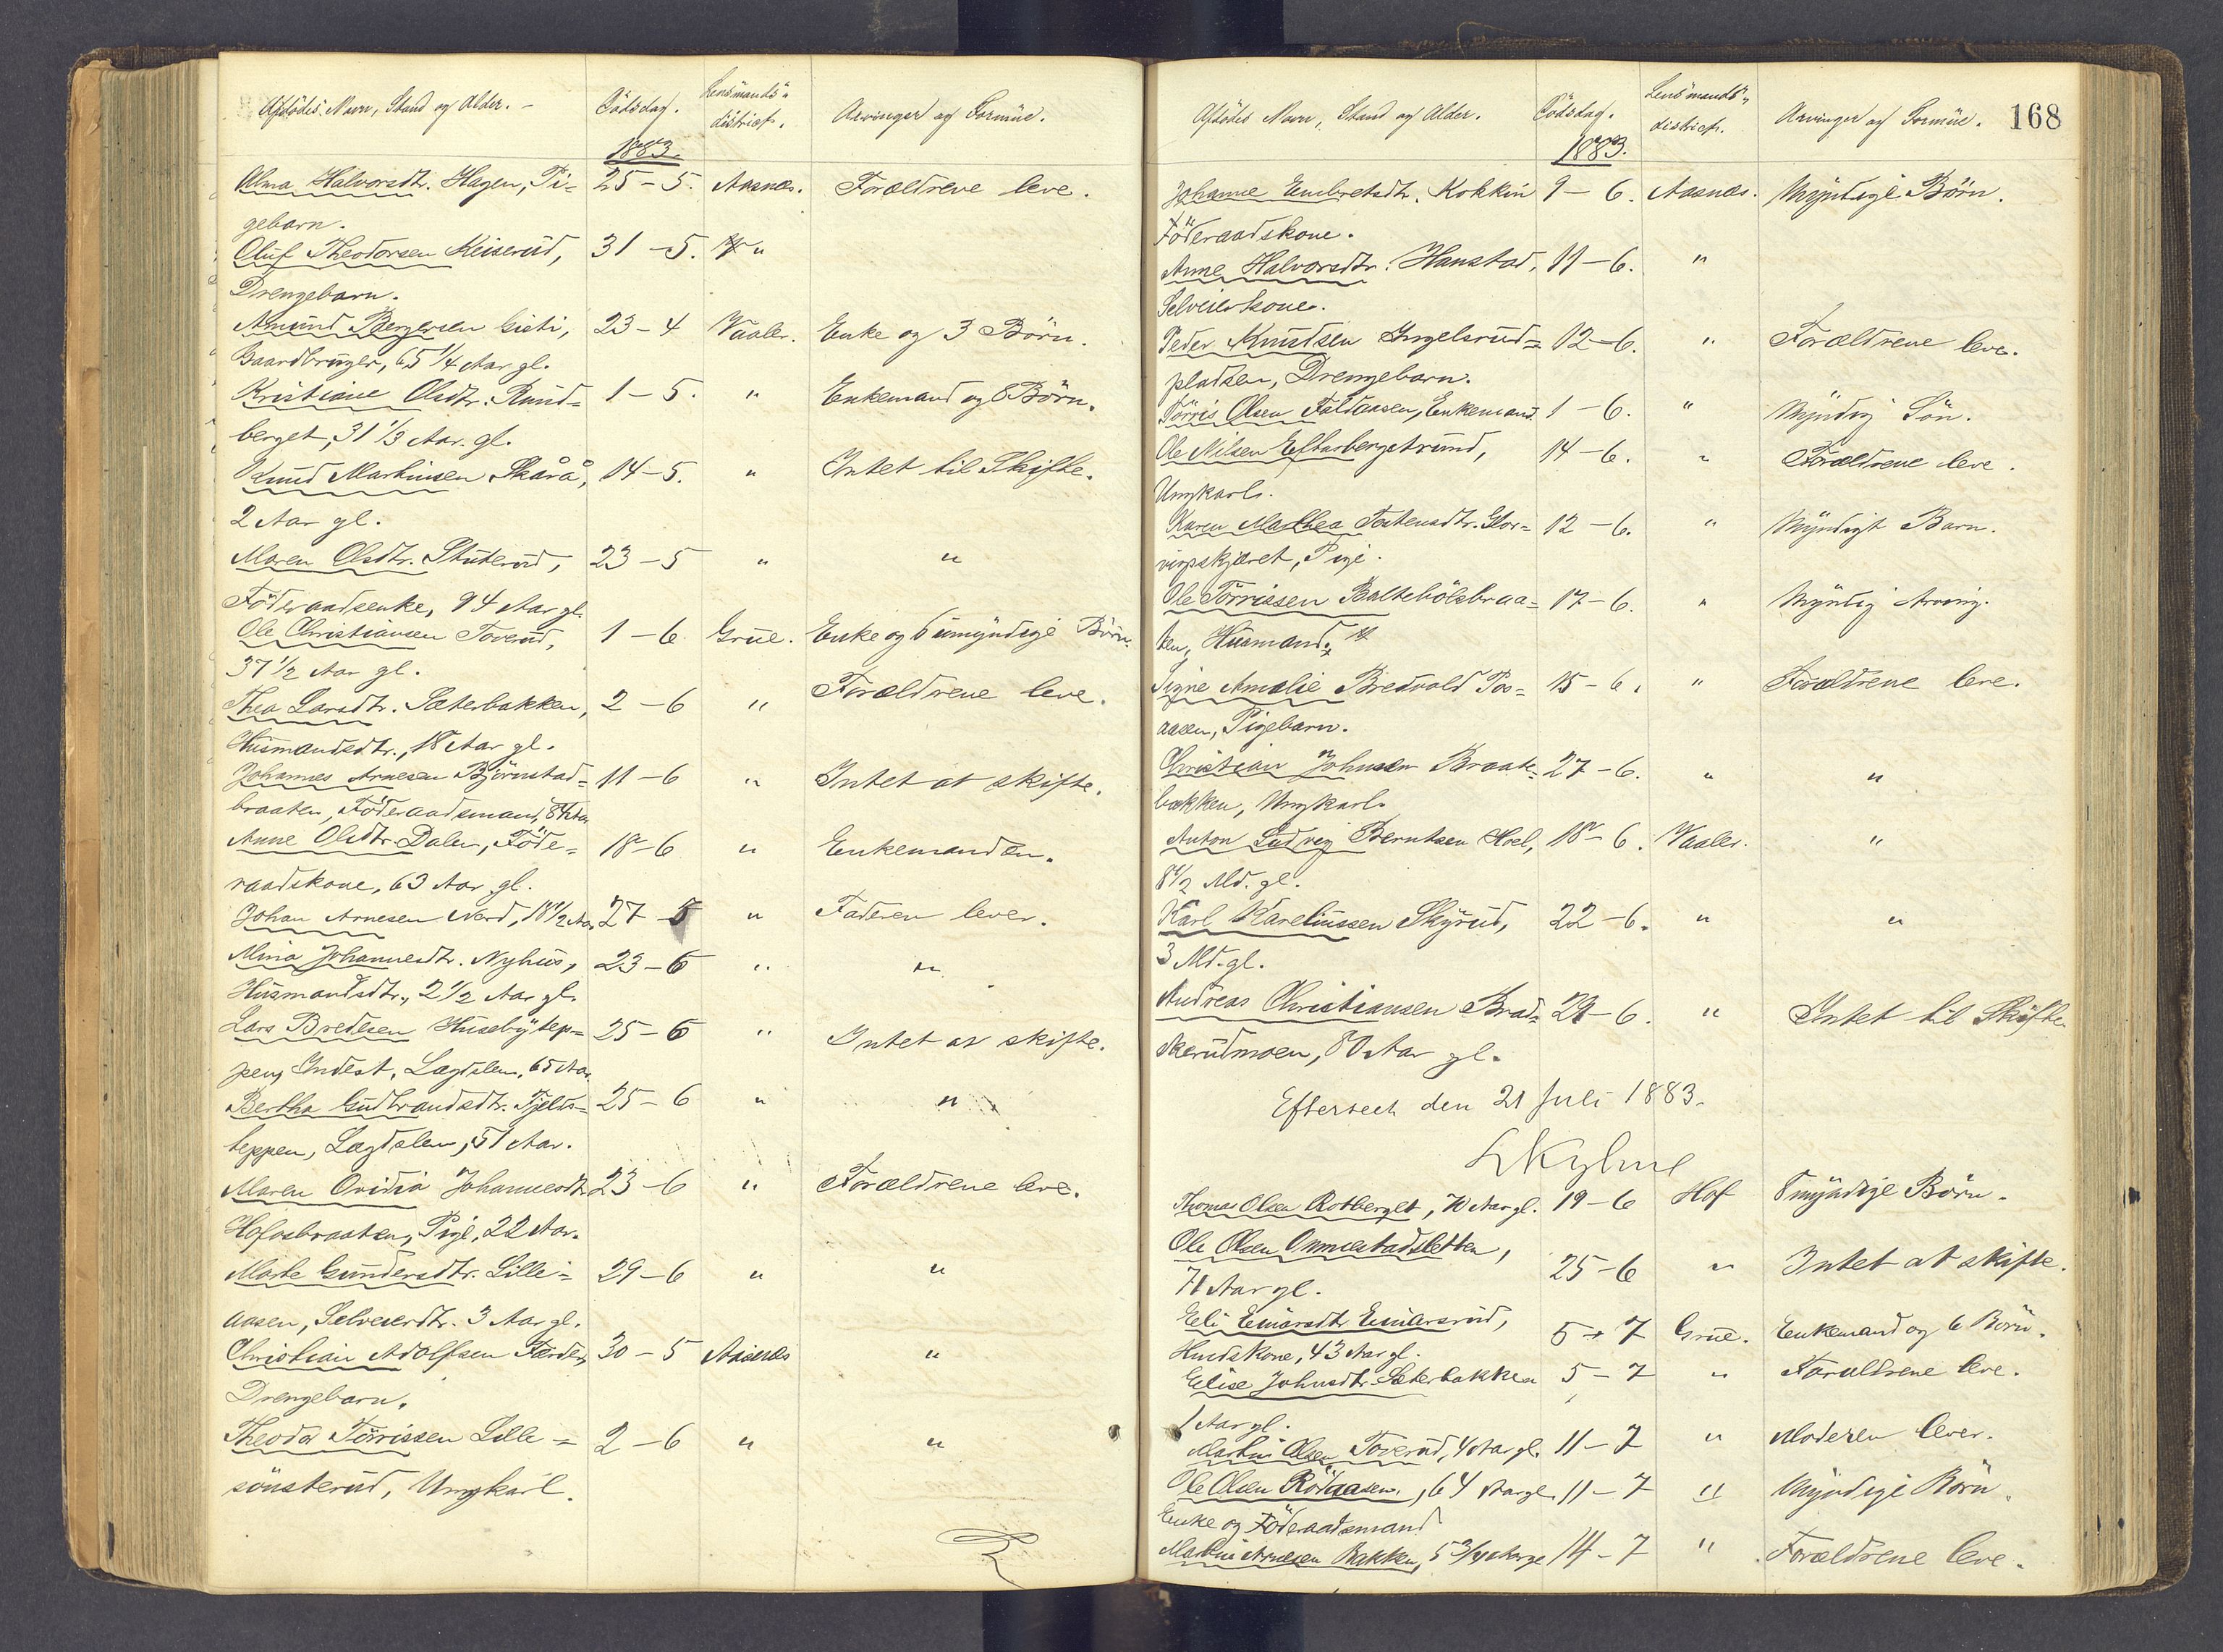 Afdödes Navn, Stand og Alder. Dödsdag. Lensmands-
district. Arvinger og Formue.
1883.
Alma Halvorsdtr. Hagen, Pi= 25-5. Aasnæs. Forældrene leve.
gebarn.
Oluf Theodorsen Keiserud, 31-5. "
Drengebarn.
Amund Bergersen Gisti, 23-4 Vaaler. Enke og 3 Börn.
Gaardbruger, 65 1/4 Aar gl.
Kristiane Olsdtr. Rund= 1-5. " Enkemand og 8 Börn.
berget, 31 1/3 Aar. gl.
Knud Martinsen Skårå, 14-5. " Intet til Skifte.
2 Aar gl.
Maren Olsdtr. Stuterud, 23-5 " "
Föderaadsenke, 94 Aar gl.
Ole Christiansen Toverud, 1-6 Grue. Enke og 6 umyndige Börn.
37 1/2 Aar gl.
Thea Larsdtr. Sæterbakken, 2-6 " Forældrene leve.
Husmandsdtr., 18 Aar gl.
Johannes Arnesen Björnstad= 11-6 " Intet at skifte.
braaten, Föderaadsmand,
Anne Olsdtr. Dalen, Föde= 18-6 " Enkemanden.
raadskone, 63 Aar gl.
Johan Arnesen Nord, 18 1/2 Aar 27-5 " Faderen lever.
Mina Johannesdtr. Nyhus, 23-6 " "
Husmandsdtr., 2 1/2 Aar gl.
Lars Bredesen Husebytep= 25-6 " Intet at skifte.
pen, Inderst, Lægdslem, 65 Aar.
Bertha Gudbrandsdtr. Tjelts= 25-6 " "
teppen, Lægdslem, 51 Aar.
Maren Ovidia Johannesdtr. 23-6 " Forældrene leve.
Hofosbraaten, Pige, 22 Aar.
Marte Gundersdtr. Lille= 29-6 " "
aasen, Selveierdtr. 3 Aar gl.
Christian Adolfsen Færder, 30-5 Aasnæs "
Drengebarn.
Theodor Törrissen Lille= 2-6 " "
sönsterud, Ungkarl.
Afdödes Navn, Stand og Alder. Dödsdag. Lensmands-
district. Arvinger og Formue. 168
1883.
Johanne Embretsdtr. Kokkin 9-6. Aasnæs. Myndige Börn.
Föderaadskone.
Anne Halvorsdtr. Hanstad, 11-6. "
Selveierkone.
Peder Knudsen Ingelsrud= 12-6. " Forældrene leve.
pladsen, Drengebarn.
Törris Olsen Faldaasen, Enkemand. 1-6. " Myndig Sön.
Ole Nilsen Eftarbergstrund, 14-6. " Forældrene leve.
Ungkarl.
Karen Mathea Tostensdtr. Glor= 12-6. " Myndigt Barn.
vigskjæret, Pige.
Ole Törrissen Baltebölsbraa= 17-6. " Myndig Arving.
ten, Husmand.
Signe Amalie Bredvold Pos= 15-6. " Forældrene leve.
aasen, Pigebarn.
Christian Johnsen Braate= 27-6. " "
bakken, Ungkarl.
Anton Ludvig Berntsen Hoel, 18-6. Vaaler. "
8 1/2 Md. gl.
Karl Kareliussen Skyrud, 22-6. " "
3 Md. gl.
Andreas Christiansen Brad= 24-6. " Intet til Skifte
skerudmoen, 80 Aar gl.
Eftersech den 21 Juli 1883.
Thomas Olsen Rotberget, 70 Aar gl. 19-6 Hof 8 myndige Börn.
Ole Olsen Ommestadsletten, 25-6 " Intet at skifte.
71 Aar gl.
Eli Einarsdtr Einarsrud, 5-7 Grue. Enkemand og 6 Börn.
Husdskone, 43 Aar gl.
Elise Johnsdtr. Sæterbakken 5-7 " Forældrene leve.
1 Aar gl.
Martin Olsen Toverud, 4 Aar gl. 11-7 " Moderen lever.
Ole Olsen Rödaasen, 64 Aar gl. 11-7 " Myndige Börn.
Enke og Föderaadsmand
Martin Arnesen Bakken, 5 3/4 Aar gl 14-7 " Forældrene leve.